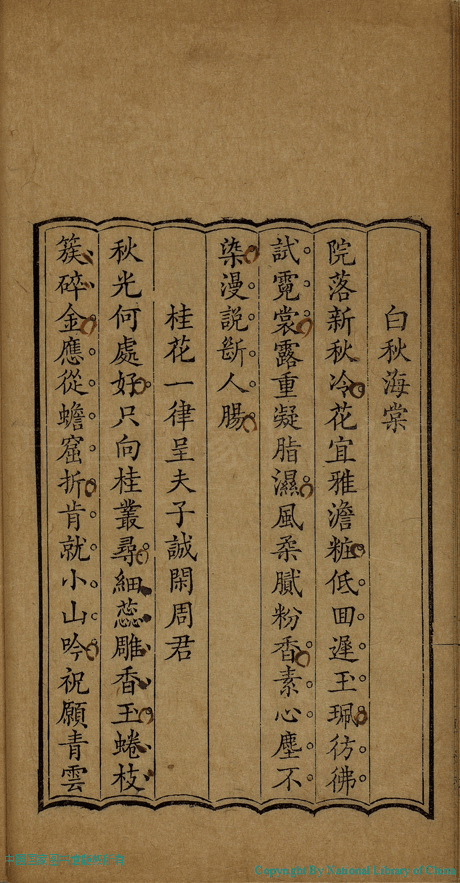 白秋海棠
院落新秋冷花宜雅澹粧低回遲玉珮彷彿
試霓裳露重凝脂濕風柔膩粉香素心塵不
染漫説斷人腸
桂花一律呈夫子誠閑周君
秋光何處好只向桂叢尋細蕊雕香玉蜷枝
簇碎金應從蟾窟折肯就小山吟祝願青雲
Copyright By National Library of China